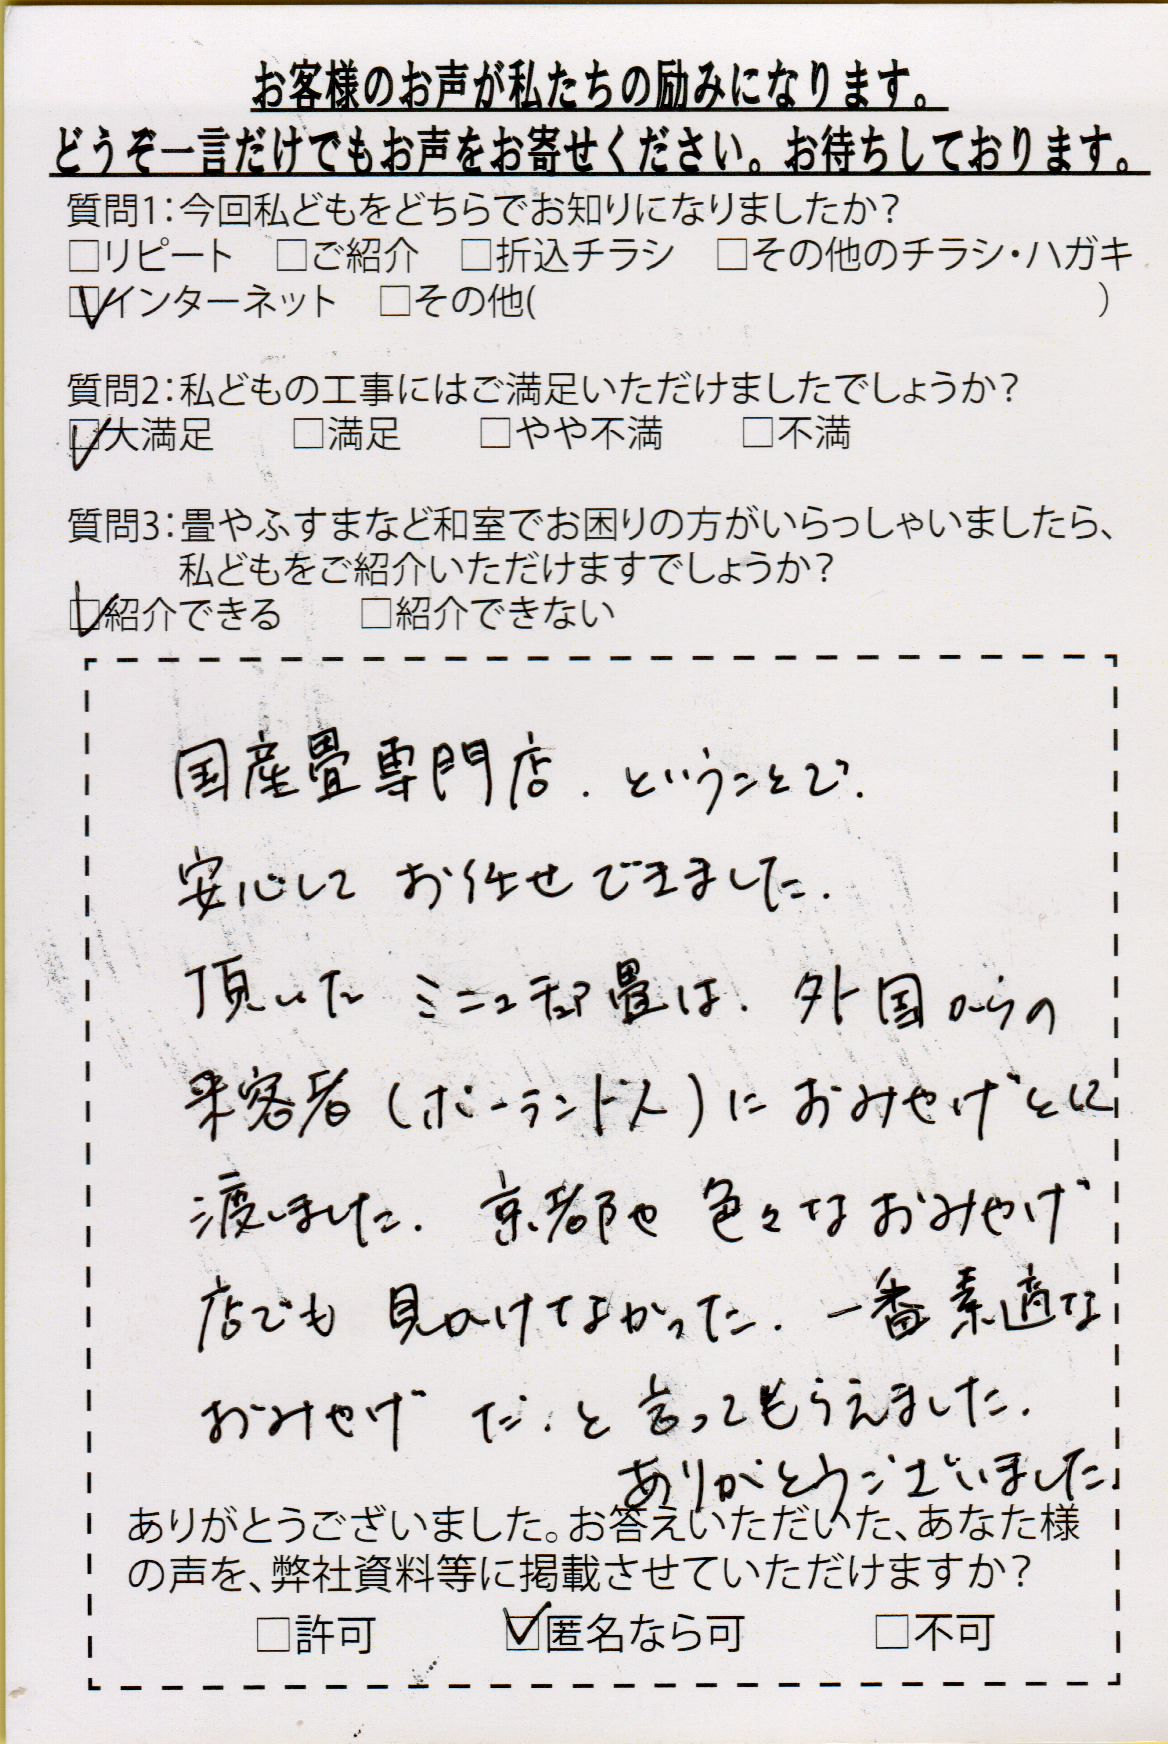 お客様のお声が私たちの励みになります。
どうぞ一言だけでもお声をお寄せください。お待ちしております。
質問1:今回私どもをどちらでお知りになりましたか?
□リピート □ご紹介 □折込チラシ □その他のチラシ・ハガキ
☑インターネット □その他( )
質問2:私どもの工事にはご満足いただけましたでしょうか?
☑大満足 □満足 □やや不満 □不満
質問3:畳やふすまなど和室でお困りの方がいらっしゃいましたら、
私どもをご紹介いただけますでしょうか?
☑紹介できる □紹介できない
国産畳専門店、ということで、
安心して お任せできました。
頂いた ミニュチュア畳は、外国からの
来客者(ポーランド人)に おみやげとに
渡しました。京都や 色々な おみやげ
店でも 見かけなかった、一番素適な
おみやげ だ、と 言ってもらえました。
ありがとうございました。
ありがとうございました。お答えいただいた、あなた様
の声を、弊社資料等に掲載させていただけますか?
□許可 ☑匿名なら可 □不可